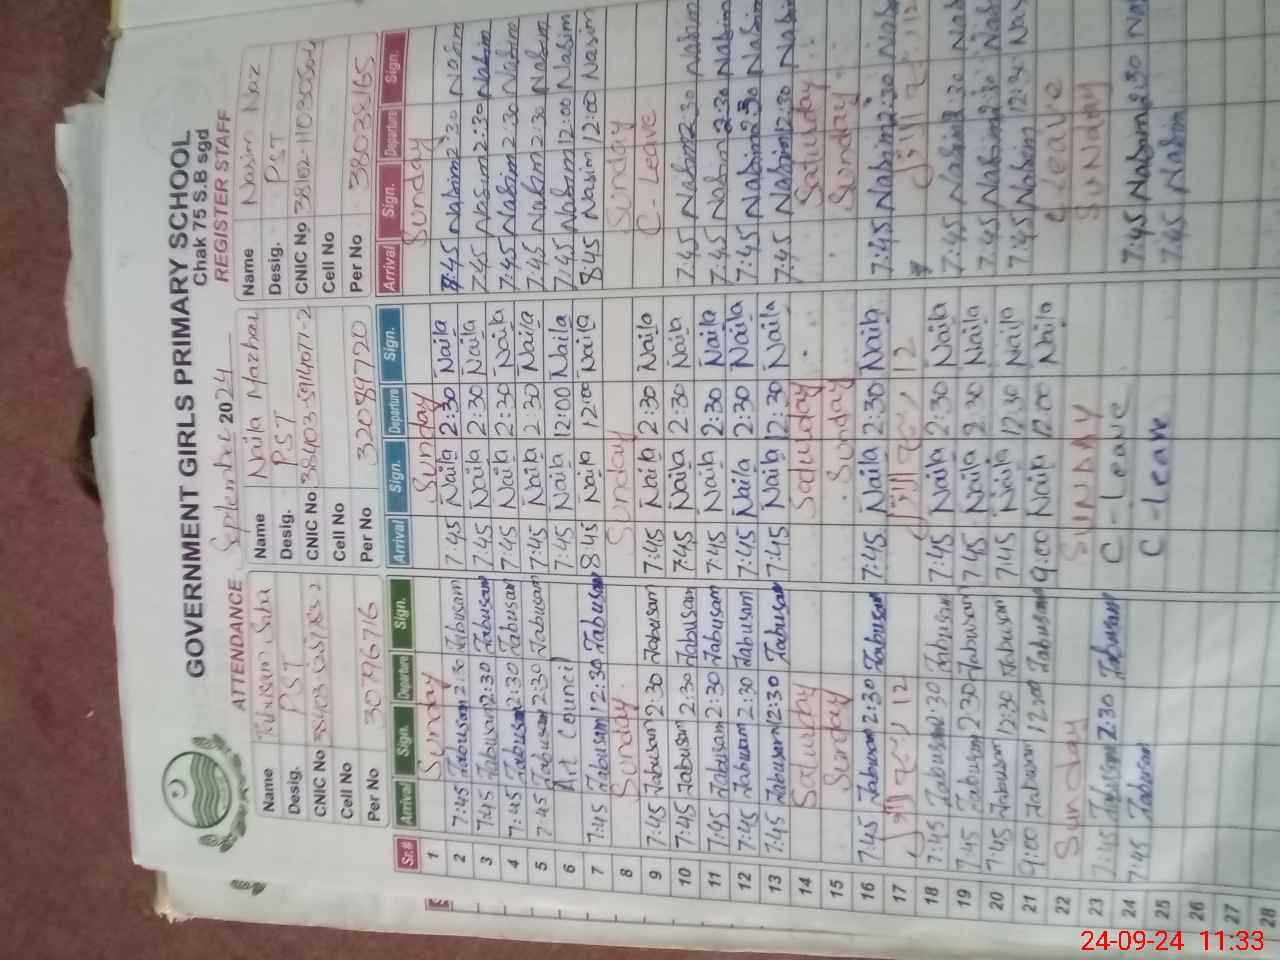 GOVERNMENT GIRLS PRIMARY SCHOOL
Chak 75 S.B sgd
ATTENDANCE September 2024 REGISTER STAFF
Name Tabusam Saba
Desig. PST
CNIC No
Cell No
Per No 30796716
Name Naila Mazhar
Desig. PST
CNIC No
Cell No
Per No 32089720
Name Nasim Naz
Desig. PST
CNIC No
Cell No
Per No 38038165
Sr.# Arrival Sign. Departure Sign. Arrival Sign. Departure Sign. Arrival Sign. Departure Sign.
1 Sunday Sunday Sunday
2 7:45 Tabusam 2:30 Tabusam 7:45 Naila 2:30 Naila 8:45 Nasim 2:30 Nasim
3 7:45 Tabusam 2:30 Tabusam 7:45 Naila 2:30 Naila 7:45 Nasim 2:30 Nasim
4 7:45 Tabusam 2:30 Tabusam 7:45 Naila 2:30 Naila 7:45 Nasim 2:30 Nasim
5 7:45 Tabusam 2:30 Tabusam 7:45 Naila 2:30 Naila 7:45 Nasim 2:30 Nasim
6 Art Councel 7:45 Naila 12:00 Naila 7:45 Nasim 12:00 Nasim
7 7:45 Tabusam 12:30 Tabusam 8:45 Naila 12:00 Naila 8:45 Nasim 12:00 Nasim
8 Sunday Sunday Sunday
9 7:45 Tabusam 2:30 Tabusam 7:45 Naila 2:30 Naila C-Leave
10 7:45 Tabusam 2:30 Tabusam 7:45 Naila 2:30 Naila 7:45 Nasim 2:30 Nasim
11 7:45 Tabusam 2:30 Tabusam 7:45 Naila 2:30 Naila 7:45 Nasim 2:30 Nasim
12 7:45 Tabusam 2:30 Tabusam 7:45 Naila 2:30 Naila 7:45 Nasim 2:30 Nasim
13 7:45 Tabusam 12:30 Tabusam 7:45 Naila 12:30 Naila 7:45 Nasim 12:30 Nasim
14 Saturday Saturday Saturday
15 Sunday Sunday Sunday
16 7:45 Tabusam 2:30 Tabusam 7:45 Naila 2:30 Naila 7:45 Nasim 2:30 Nasim
17 12 12 12
18 7:45 Tabusam 2:30 Tabusam 7:45 Naila 2:30 Naila 7:45 Nasim 2:30 Nas
19 7:45 Tabusam 2:30 Tabusam 7:45 Naila 2:30 Naila 7:45 Nasim 2:30 Nas
20 7:45 Tabusam 12:30 Tabusam 7:45 Naila 12:30 Naila 7:45 Nasim 12:30 Nas
21 9:00 Tabusam 12:00 Tabusam 9:00 Naila 12:00 Naila C-Leave
22 Sunday SUNDAY SUNday
23 7:45 Tabusam 2:30 Tabusam C-Leave 7:45 Nasim 2:30 Na
24 7:45 Tabusam C-leave 7:45 Nasim
25
26
27
28
24-09-24 11:33